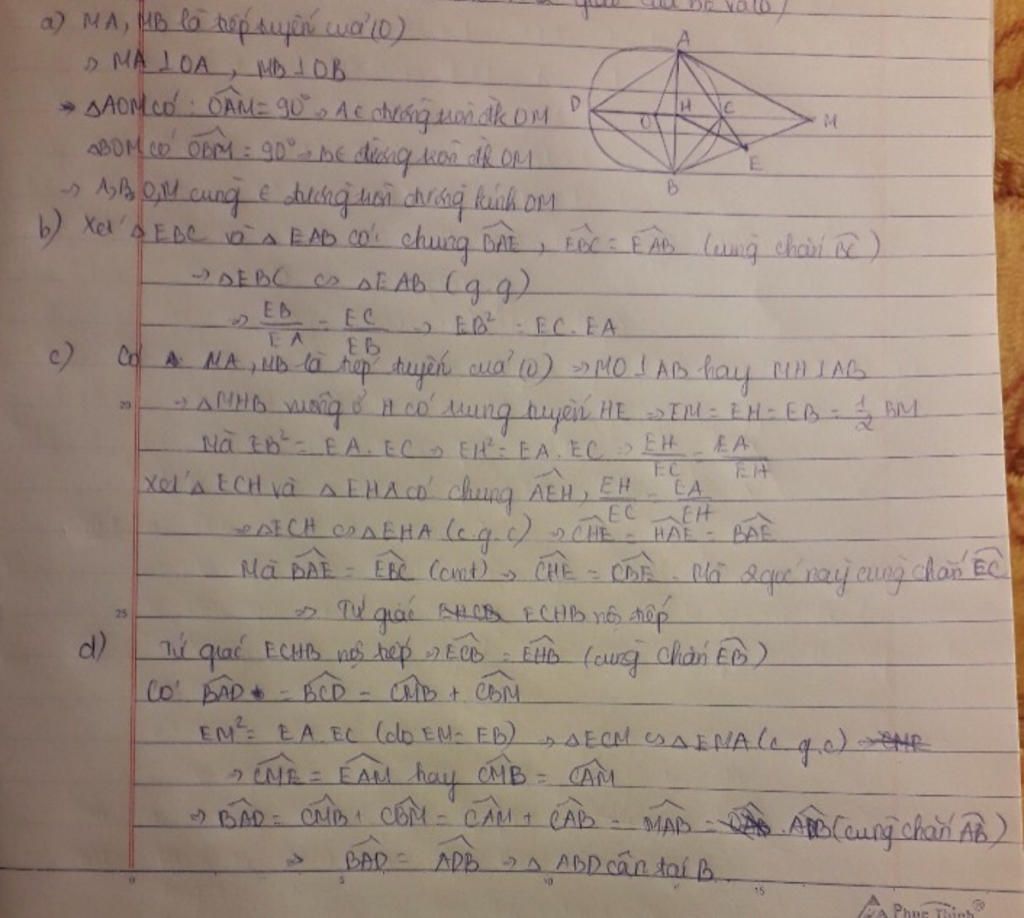 giao của BE và (O)
a) MA, MB là tiếp tuyến của (O)
⇒ MA ⊥ OA, MB ⊥ OB
→ ΔAOM có: \widehat{OAM} = 90° → A ∈ đường tròn đk OM
ΔBOM có \widehat{OBM} = 90° → B ∈ đường tròn đk OM
→ A, B, O, M cùng ∈ đường tròn đường kính OM
A
D
H
C
O
M
E
B
b) Xét Δ EBC và Δ EAB có: chung \widehat{BAE}, \widehat{EBC} = \widehat{EAB} (cùng chắn \widehat{BC})
→ ΔEBC ∽ ΔEAB (g.g)
→ \frac{EB}{EA} = \frac{EC}{EB} → EB² = EC.EA
c) Có MA, MB là tiếp tuyến của (O) → MO ⊥ AB hay MH ⊥ AB
20 → ΔMHB vuông ở H có trung tuyến HE → EM = EH = EB = \frac{1}{2} BM
Mà EB² = EA.EC → EH² = EA.EC → \frac{EH}{EC} = \frac{EA}{EH}
Xét Δ ECH và Δ EHA có chung \widehat{AEH}, \frac{EH}{EC} = \frac{EA}{EH}
→ ΔECH ∽ ΔEHA (c.g.c) → \widehat{CHE} = \widehat{HAE} = \widehat{BAE}
Mà \widehat{BAE} = \widehat{EBC} (cmt) → \widehat{CHE} = \widehat{CBE}. Mà 2 góc này cùng chắn \widehat{EC}
25 ⇒ Tứ giác ECHB nội tiếp
d) Tứ giác ECHB nội tiếp → \widehat{ECB} = \widehat{EHB} (cùng chắn \widehat{EB})
Có \widehat{BAD} = \widehat{BCD} = \widehat{CMB} + \widehat{CBM}
EM² = EA.EC (do EM = EB) → ΔECM ∽ ΔEMA (c.g.c)
→ \widehat{CME} = \widehat{EAM} hay \widehat{CMB} = \widehat{CAM}
→ \widehat{BAD} = \widehat{CMB} + \widehat{CBM} = \widehat{CAM} + \widehat{CAB} = \widehat{MAB} = \widehat{ADB} (cùng chắn \widehat{AB})
→ \widehat{BAD} = \widehat{ADB} → Δ ABD cân tại B.
0 5 10 15
Phúc Thịnh®